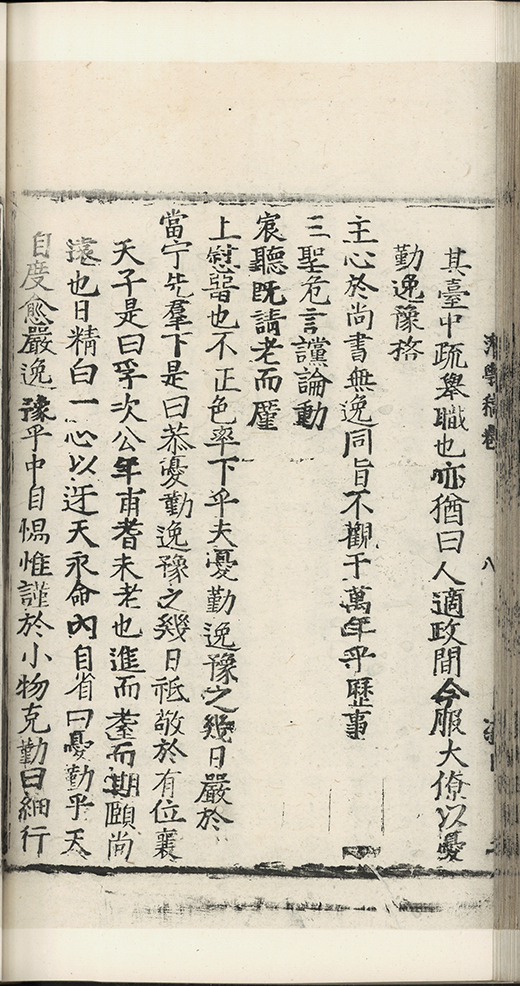 其臺中疏舉職也亦猶曰人適政間今服大僚以憂
勤逸豫格
主心於尚書無逸同旨不觀于萬年乎歷事
三聖危言讜論動
宸聽既請老而厪
上慰畱也不正色率下乎夫憂勤逸豫之幾日嚴於
當宁先羣下是曰恭憂勤逸豫之幾日祗敬於有位襄
天子是曰孚次公年甫耆未老也進而耋而期頤尚
遠也日精白一心以迓天永命內自省曰憂勤乎天
自度愈嚴逸豫乎中自惕惟謹於小物克勤曰細行
學稿卷 八